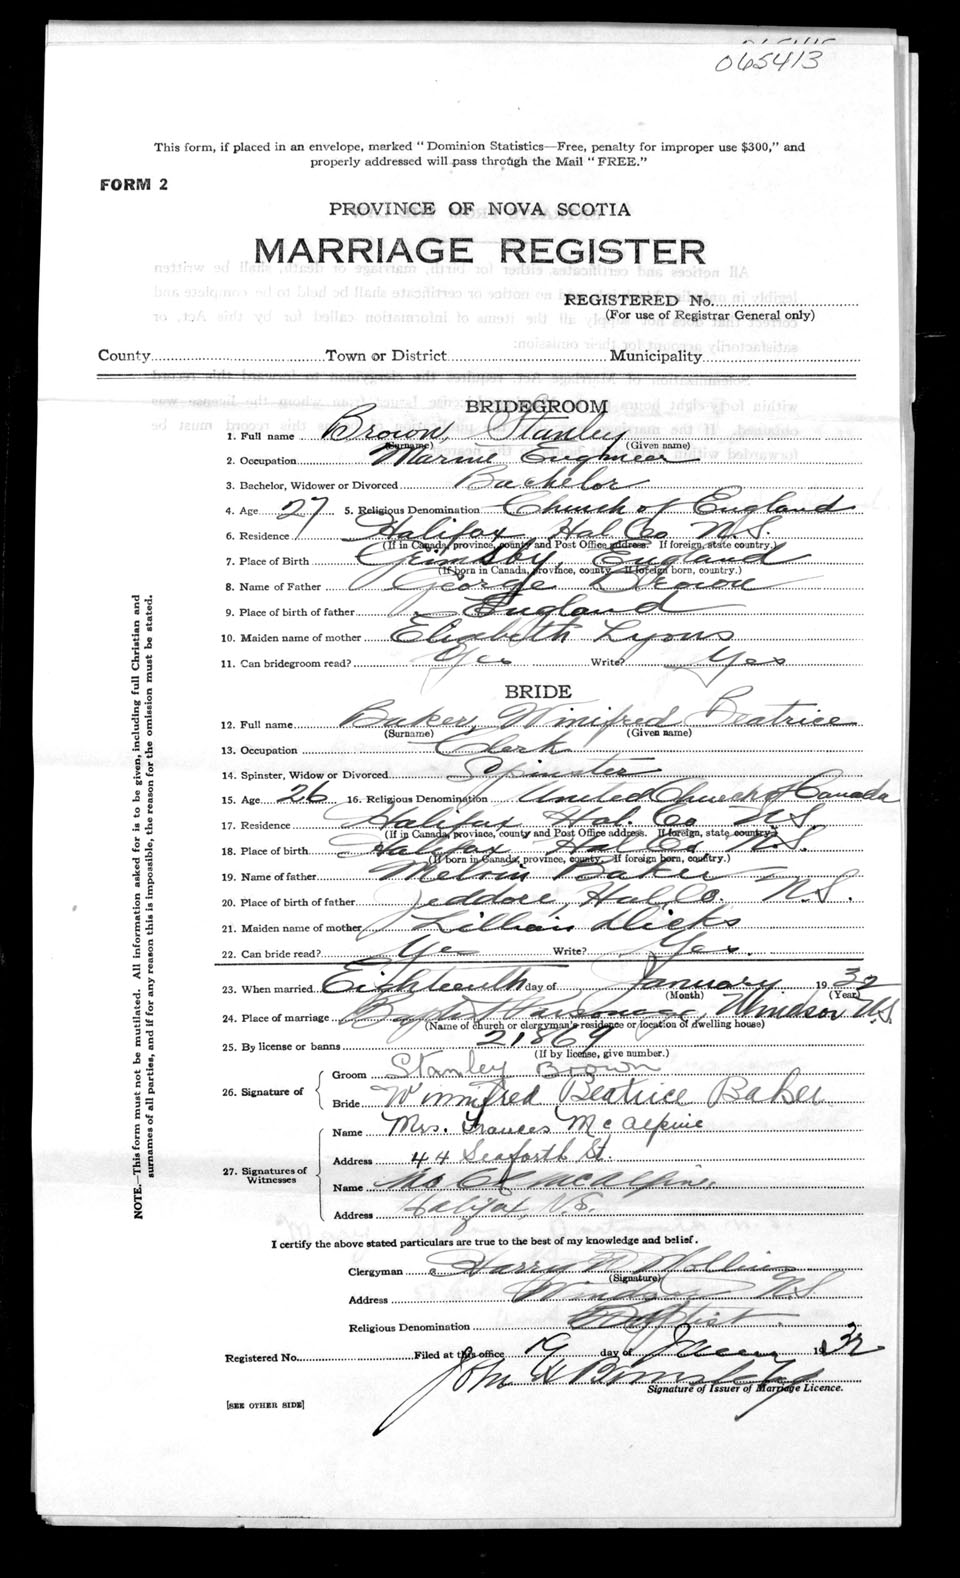 065413
This form, if placed in an envelope, marked "Dominion Statistics—Free, penalty for improper use $300," and
properly addressed will pass through the Mail "FREE."
FORM 2
PROVINCE OF NOVA SCOTIA
MARRIAGE REGISTER
REGISTERED No.
(For use of Registrar General only)
County Town or District Municipality
BRIDEGROOM
1. Full name Brown, Stanley
(Surname) (Given name)
2. Occupation Marine Engineer
3. Bachelor, Widower or Divorced Bachelor
4. Age 27 5. Religious Denomination Church of England
6. Residence Halifax Hal Co N.S.
(If in Canada, province, county and Post Office address. If foreign, state country.)
7. Place of Birth Grimsby, England
(If born in Canada, province, county. If foreign born, country.)
8. Name of Father George Brown
9. Place of birth of father England
10. Maiden name of mother Elizabeth Lyons
11. Can bridegroom read? Yes Write? Yes
BRIDE
12. Full name Baker, Winifred Beatrice
(Surname) (Given name)
13. Occupation Clerk
14. Spinster, Widow or Divorced Spinster
15. Age 26 16. Religious Denomination United Church of Canada
17. Residence Halifax Hal. Co N.S.
(If in Canada, province, county and Post Office address. If foreign, state country.)
18. Place of birth Halifax Hal Co N.S.
(If born in Canada, province, county. If foreign born, country.)
19. Name of father Melvin Baker
20. Place of birth of father Jeddore, Hal. Co. N.S.
21. Maiden name of mother Lillian Hicks
22. Can bride read? Yes Write? Yes.
23. When married Eighteenth day of January 1932
(Month) (Year)
24. Place of marriage Baptist Parsonage, Windsor N.S.
(Name of church or clergyman's residence or location of dwelling house)
25. By license or banns 21869
(If by license, give number.)
26. Signature of
Groom Stanley Brown
Bride Winnifred Beatrice Baker
27. Signatures of Witnesses
Name Mrs. Frances McAlpine
Address 44 Seaforth St.
Name McAlpine
Address Halifax, N.S.
I certify the above stated particulars are true to the best of my knowledge and belief.
Clergyman Harry
(Signature)
Address Windsor N.S.
Religious Denomination Baptist.
Registered No. Filed at this office 19 day of 1932
John H
Signature of Issuer of Marriage Licence.
[SEE OTHER SIDE]
NOTE.—This form must not be mutilated. All information asked for is to be given, including full Christian and
surnames of all parties, and if for any reason this is impossible, the reason for the omission must be stated.